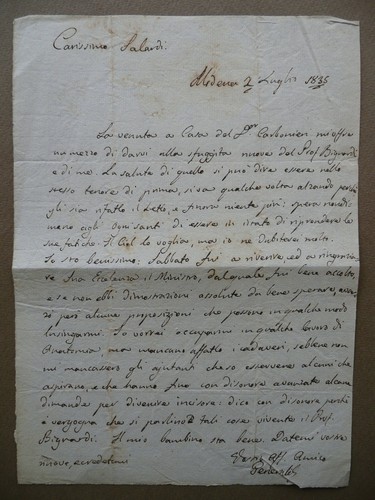 Carissimo Salardi:
Modena 2 Luglio 1835
La venuta a Casa del Carbonieri mi offre
un mezzo di darvi alla sfuggita nuove del Prof. Bignardi
e di me. La salute di quello si può dire essere nello
stesso tenore di prima, si va qualche volta alzando perchè
gli sia rifatto il Letto, e finora niente più: spera
egli Ognisanti di essere in istato di riprendere le
sue fatiche. Il Ciel lo voglia, ma io ne dubiterei molto.
Io sto benissimo. Sabbato fui a riverire, ed a ringraziare
Sua Eccelenza il Ministro, dal quale fui bene accolto,
e se non ebbi dimostrazioni assolute da bene sperare,
però alcune proposizioni che possono in qualche modo
lusingarmi. Io vorrei occuparmi in qualche lavoro di
ma mancano affatto i cadaveri, sebbene non
mi mancassero gli ajutanti esservene alcuni che
aspirano, e che hanno fino con disonore avanzate alcune
dimande per divenire incisore: dico con disonore perchè
è vergogna che si parlino di tali cose vivente il Prof.
Bignardi. Il mio bambino sta bene. Datemi vostre
nuove, e credetemi
Vostro Aff. Amico